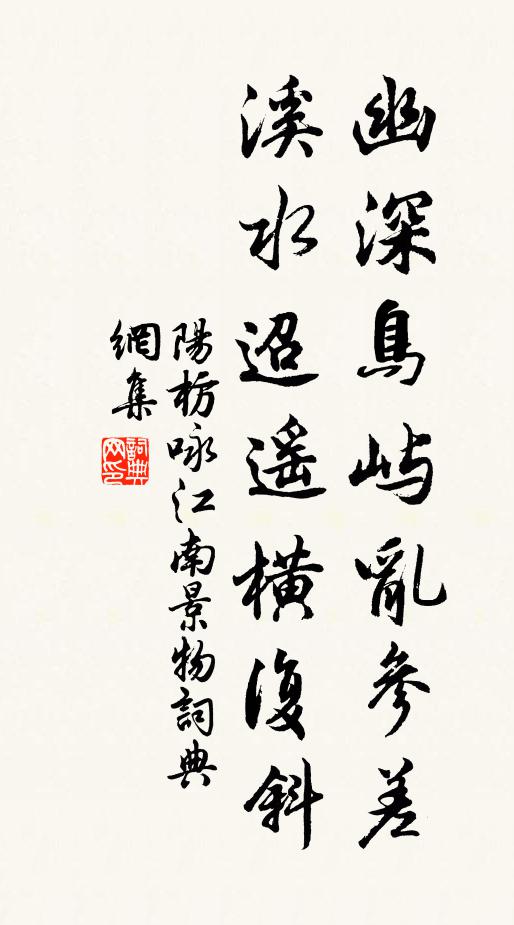 幽深島嶼亂參差
溪水迢遙橫復斜
陽枋咏江南景物詞典
網集
詞典
网印